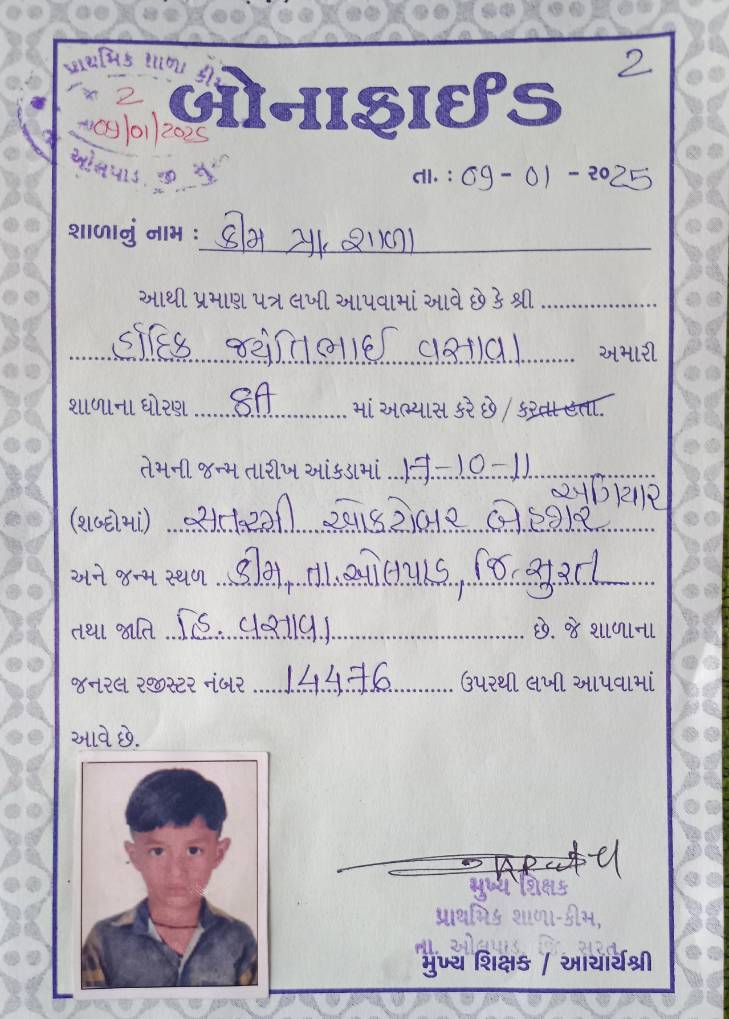 પ્રાથમિક શાળા કીમ
2
2
તા 09/01/2025
ઓલપાડ જી સુ
બોનાફાઈડ
તા. : 09 - 01 - ૨૦25
શાળાનું નામ : કીમ પ્રા. શાળા
આથી પ્રમાણ પત્ર લખી આપવામાં આવે છે કે શ્રી
હાર્દિક જયંતિભાઈ વસાવા અમારી
શાળાના ધોરણ 8A માં અભ્યાસ કરે છે / કરતા હતા.
તેમની જન્મ તારીખ આંકડામાં 17-10-11
અગિયાર
(શબ્દોમાં) સતરમી ઓકટોબર બેહજાર
અને જન્મ સ્થળ કીમ, તા. ઓલપાડ, જિ. સુરત
તથા જાતિ હિ. વસાવા છે. જે શાળાના
જનરલ રજીસ્ટર નંબર 14476 ઉપરથી લખી આપવામાં
આવે છે.
મુખ્ય શિક્ષક
પ્રાથમિક શાળા-કીમ,
તા. ઓલપાડ, જિ. સુરત
મુખ્ય શિક્ષક / આચાર્યશ્રી